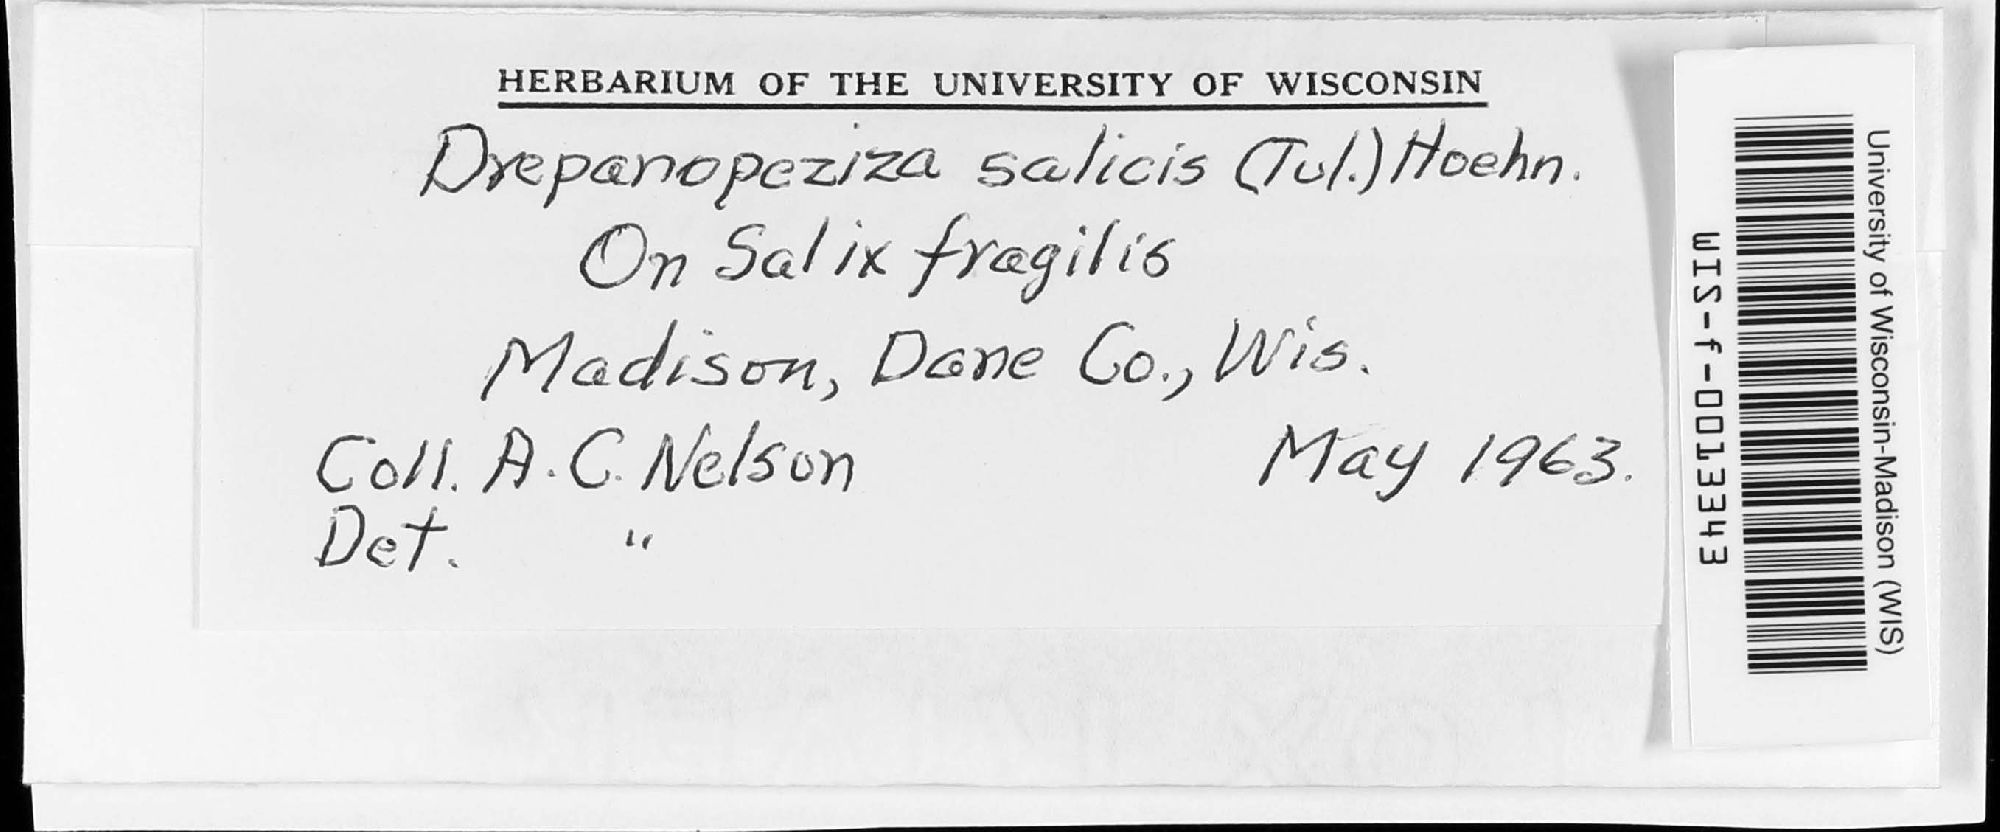 HERBARIUM OF THE UNIVERSITY OF WISCONSIN
Drepanopeziza salicis (Tul.) Hoehn.
On Salix fragilis
Madison, Dane Co., Wis.
Coll. A. C. Nelson May 1963.
Det. "
University of Wisconsin-Madison (WIS)
WIS-f-0013343